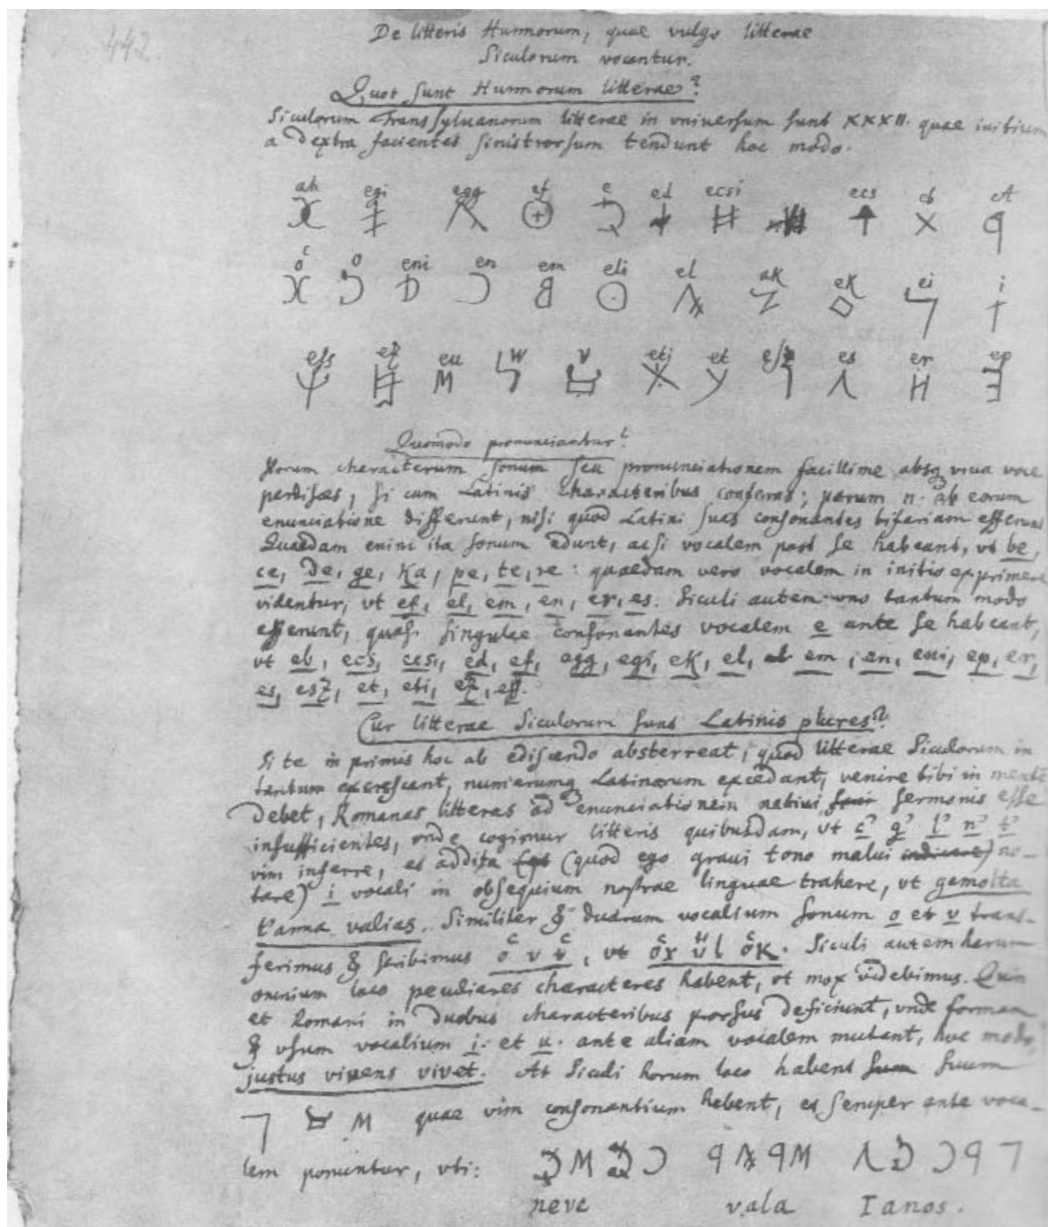 442.
De litteris Hunnorum, quae vulgo litterae
Siculorum vocantur.
Quot sunt Hunnorum litterae?
Siculorum Transsyluanorum litterae in vniuersum sunt XXXII. quae initium
a dextra facientes sinistrorsum tendunt hoc modo.
ah egi egg ef e ed ecsi ecs eb A
ő o eni en em eli el aK eK ei i
ess ez eu W V eti et esz es er ep
Quomodo pronunciantur?
Horum characterum sonum seu pronunciationem facillime absq viua voce
perdisces, si cum Latinis characteribus conferas; parum n. ab eorum
enunciatione differunt, nisi quod Latini suas consonantes bifariam efferunt
Quaedam enim ita sonum edunt, acsi vocalem post se habeant, vt be,
ce, de, ge, Ka, pe, te, ve: quaedam vero vocalem in initio exprimere
videntur, vt ef, el, em, en, er, es. Siculi autem vno tantum modo
efferunt, quasi singulae consonantes vocalem e ante se habeant,
vt eb, ecs, ecsi, ed, ef, egg, egi, eK, el, em, en, eni, ep, er,
es, esz, et, eti, ez, ess.
Cur litterae Siculorum sunt Latinis plures?
Si te in primis hoc ab ediscendo absterreat, quod litterae Siculorum in
tantum excrescant, numerumq Latinorum excedant, venire tibi in mente
debet, Romanas litteras ad enunciationem natiui sermonis esse
insufficientes, vnde cogimur litteris quibusdam, vt c' g' l' n' t'
vim inferre, et addita (quod ego graui tono malui no-
tare) i vocali in obsequium nostrae linguae trahere, vt gemolta
tanna valias. Similiter & duarum vocalium sonum o et v trans-
ferimus & scribimus ő v v̋, vt őx űl őK. Siculi autem harum
omnium loco peculiares characteres habent, vt mox videbimus. Quin
et Romani in duobus characteribus prorsus deficiunt, vnde formam
& vsum vocalium i. et u. ante aliam vocalem mutant, hoc modo,
justus vivens vivet. At Siculi horum loco habent suum
quae vim consonantium habent, et semper ante voca-
lem ponuntur, vti:
neve vala Ianos.